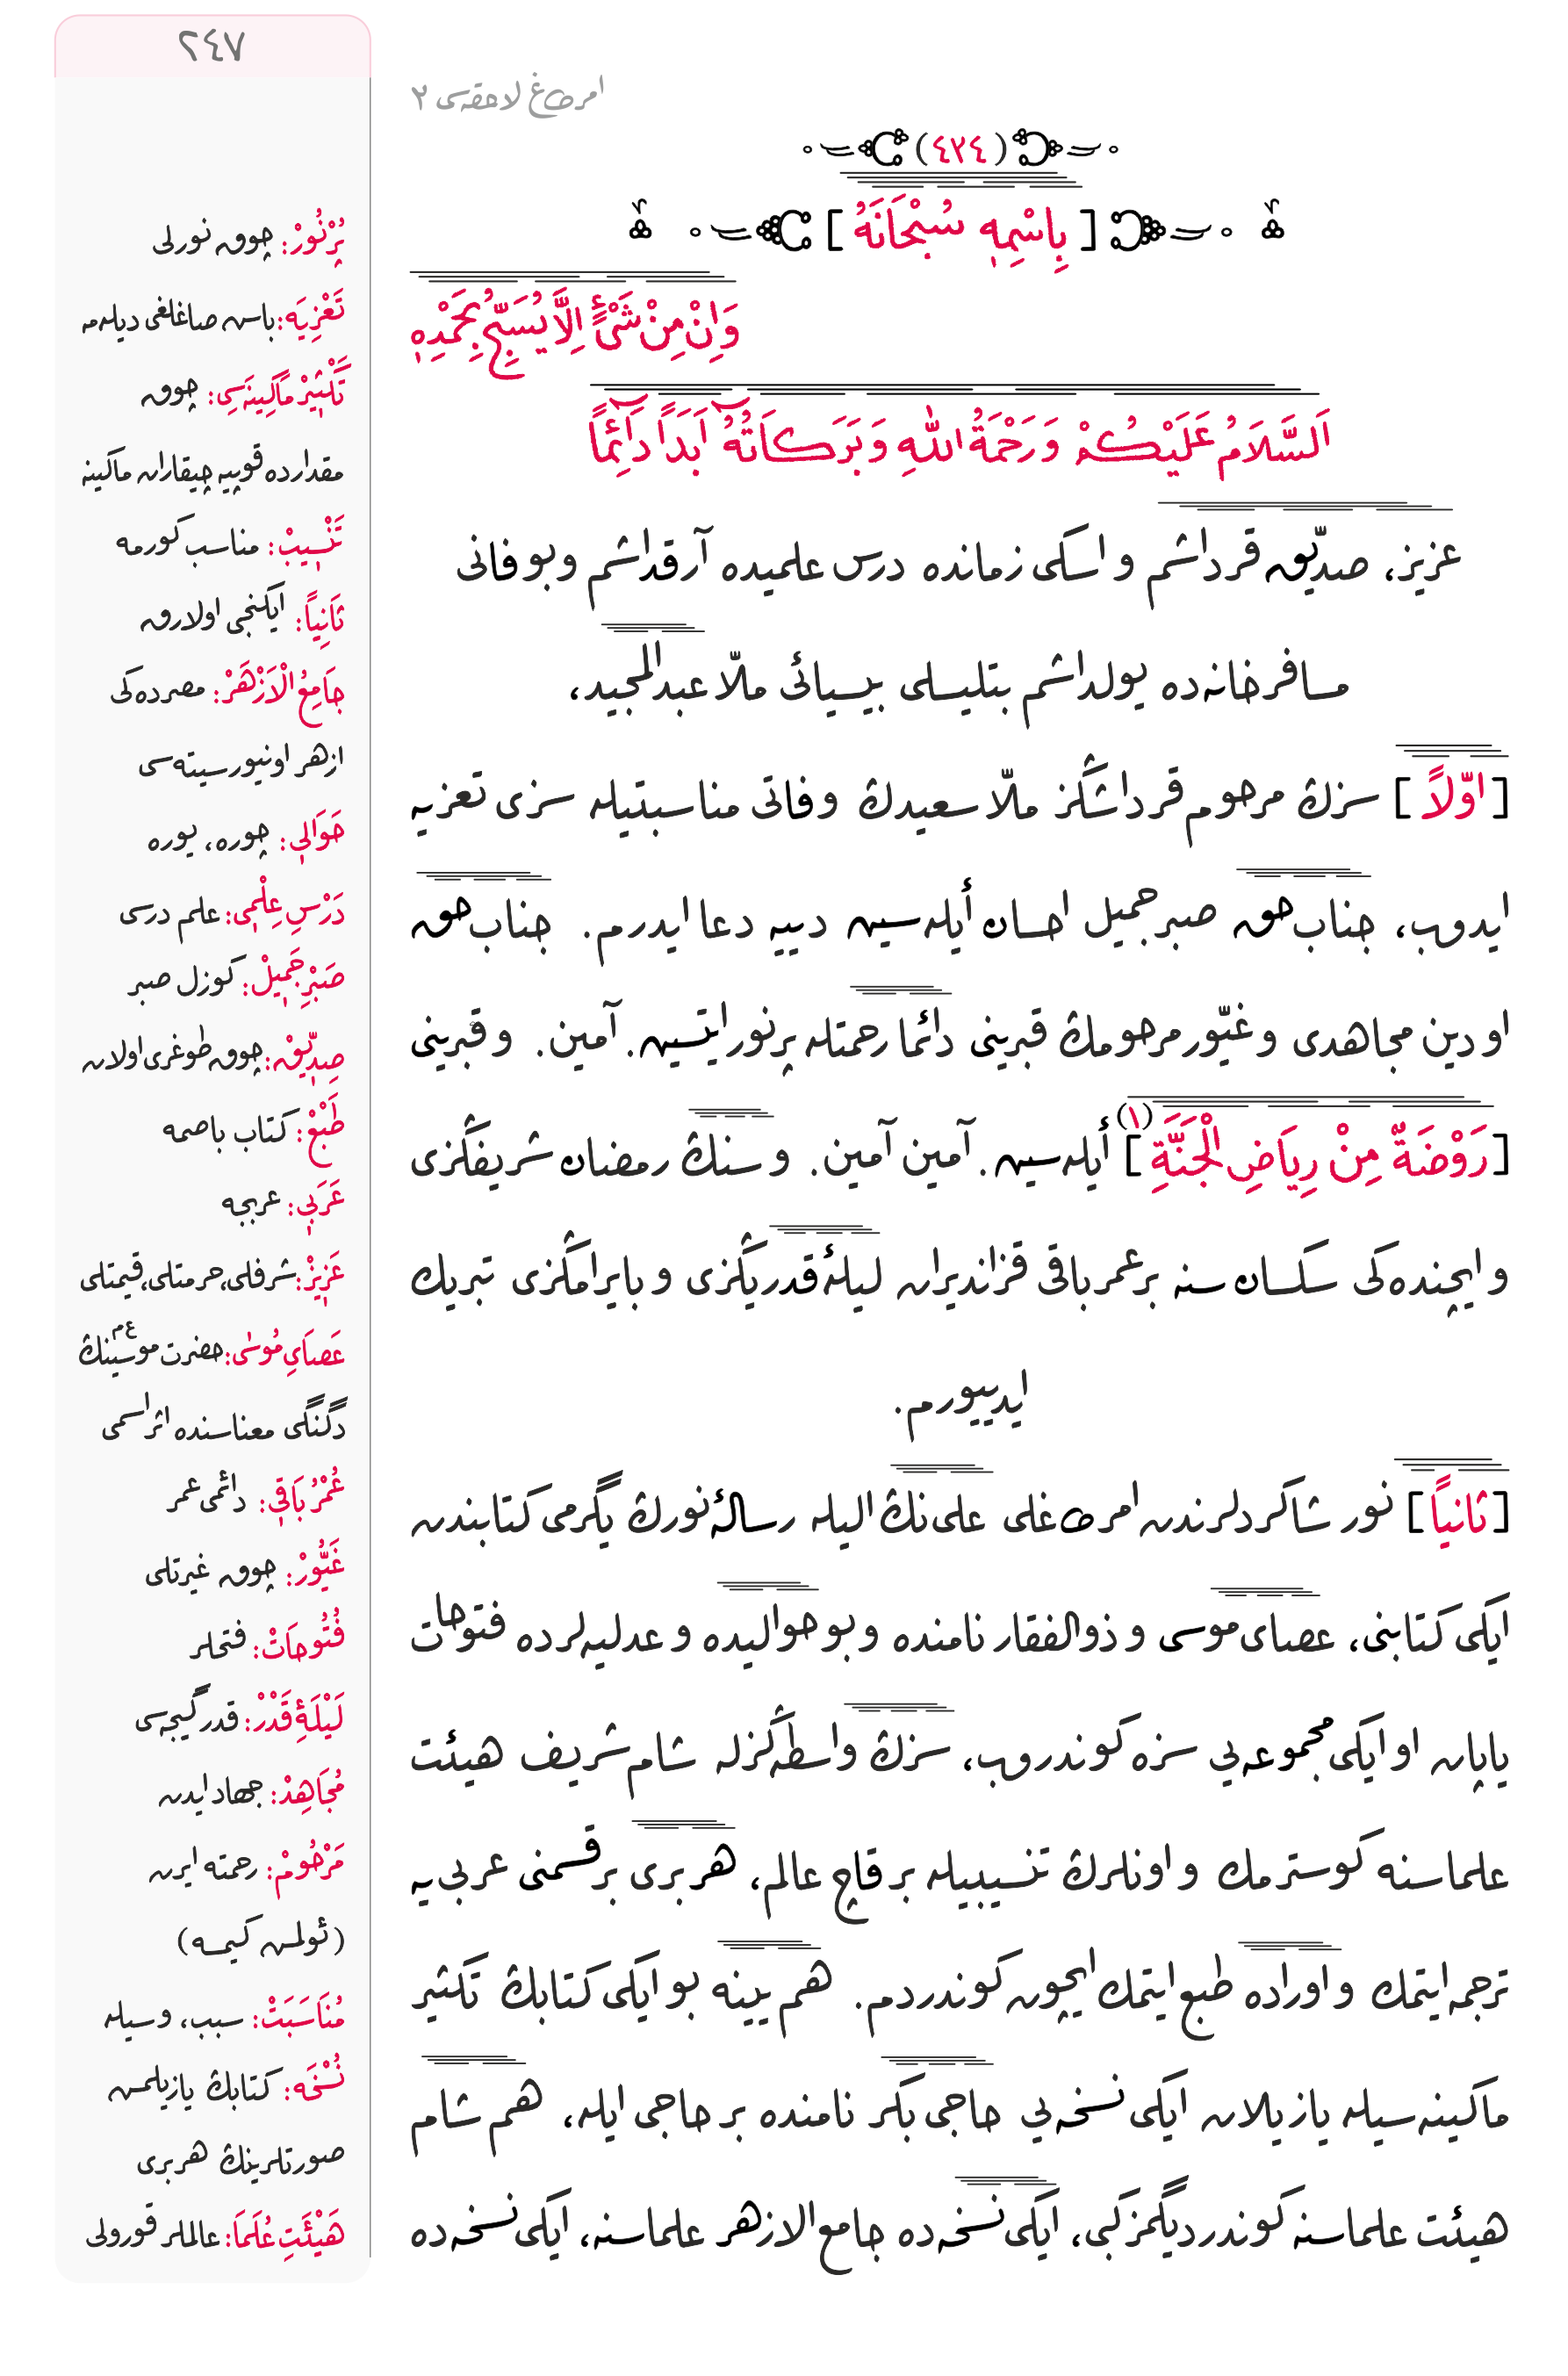 ٢٤٧
امرطاغ لاحقه‌سی ٢
(٤٢٤)
[ بِاسْمِهٖ سُبْحَانَهُ ]
وَاِنْ مِنْ شَىْءٍ اِلَّا يُسَبِّحُ بِحَمْدِهٖ
اَلسَّلَامُ عَلَيْكُمْ وَ رَحْمَةُ اللّٰهِ وَ بَرَكَاتُهُٓ اَبَدًا دَٓائِمًا
عزيز، صدّيق قرداشم و اسكی زمانده درس علميده آرقداشم و بو فانی
مسافرخانه‌ده يولداشم بتليسلی بيسيائی ملّا عبدالمجيد،
[اوّلاً] سزڭ مرحوم قرداشڭز ملّا سعيدڭ وفاتی مناسبتيله سزی تعزيه
ايدوب، جناب حق صبر جميل احسان أيله‌سين دييه دعا ايدرم. جناب حق
او دين مجاهدی و غيّور مرحومڭ قبرينی دائما رحمتله پرنور ايتسين. آمين. و قبرينی
[رَوْضَةٌ مِنْ رِيَاضِ الْجَنَّةِ](١) أيله‌سين. آمين آمين. و سنڭ رمضان شريفڭزی
و ايچنده‌كی سكسان سنه بر عمر باقی قزانديران ليلۀ قدريڭزی و بايرامڭزی تبريك
ايدييورم.
[ثانياً] نور شاكردلرندن امرطاغلی علی‌نڭ اليله رسالۀ نورڭ يگرمی كتابندن
ايكی كتابنی، عصای موسی و ذوالفقار نامنده و بو حواليده و عدليه‌لرده فتوحات
ياپان او ايكی مجموعه‌يي سزه كوندروب، سزڭ واسطه‌ڭزله شام شريف هيئت
علماسنه كوسترمك و اونلرڭ تنسيبيله بر قاچ عالم، هر بری بر قسمنی عربی‌يه
ترجمه ايتمك و اوراده طبع ايتمك ايچون كوندردم. هم يينه بو ايكی كتابڭ تكثير
ماكينه‌سيله يازيلان ايكی نسخه‌يي حاجی بكر نامنده بر حاجی ايله، هم شام
هيئت علماسنه كوندرديگمز كبی، ايكی نسخه‌ده جامع الازهر علماسنه، ايكی نسخه‌ده
پُرْنُورْ: چوق نورلی
تَعْزِيَه: باش صاغلغی ديله‌مه
تَكْثٖيرْ مَاكِينَه‌سِی: چوق
مقدارده قوپيه چيقاران ماكينه
تَنْسٖيبْ: مناسب كورمه
ثَانِيًا: ايكنجی اولارق
جَامِعُ الْاَزْهَرْ: مصرده‌كی
ازهر اونيورسيته‌سی
حَوَالٖی: چوره، يوره
دَرْسِ عِلْمٖی: علم درسی
صَبْرِ جَمٖيلْ: كوزل صبر
صِدّٖيقْ: چوق طوغری اولان
طَبْعْ: كتاب باصمه
عَرَبٖی: عربجه
عَزٖيزْ: شرفلی، حرمتلی، قيمتلی
عَصَایِ مُوسٰی: حضرت موسینڭ ع م
دگنگی معناسنده اثر اسمی
عُمْرُ بَاقٖی: دائمی عمر
غَيُّورْ: چوق غيرتلی
فُتُوحَاتْ: فتحلر
لَيْلَۀِ قَدْرْ: قدر گيجه‌سی
مُجَاهِدْ: جهاد ايدن
مَرْحُومْ: رحمته ايرن
(ئولمش كيمسه)
مُنَاسَبَتْ: سبب، وسيله
نُسْخَه: كتابڭ يازيلمش
صورتلرينڭ هر بری
هَيْئَتِ عُلَمَا: عالملر قورولی